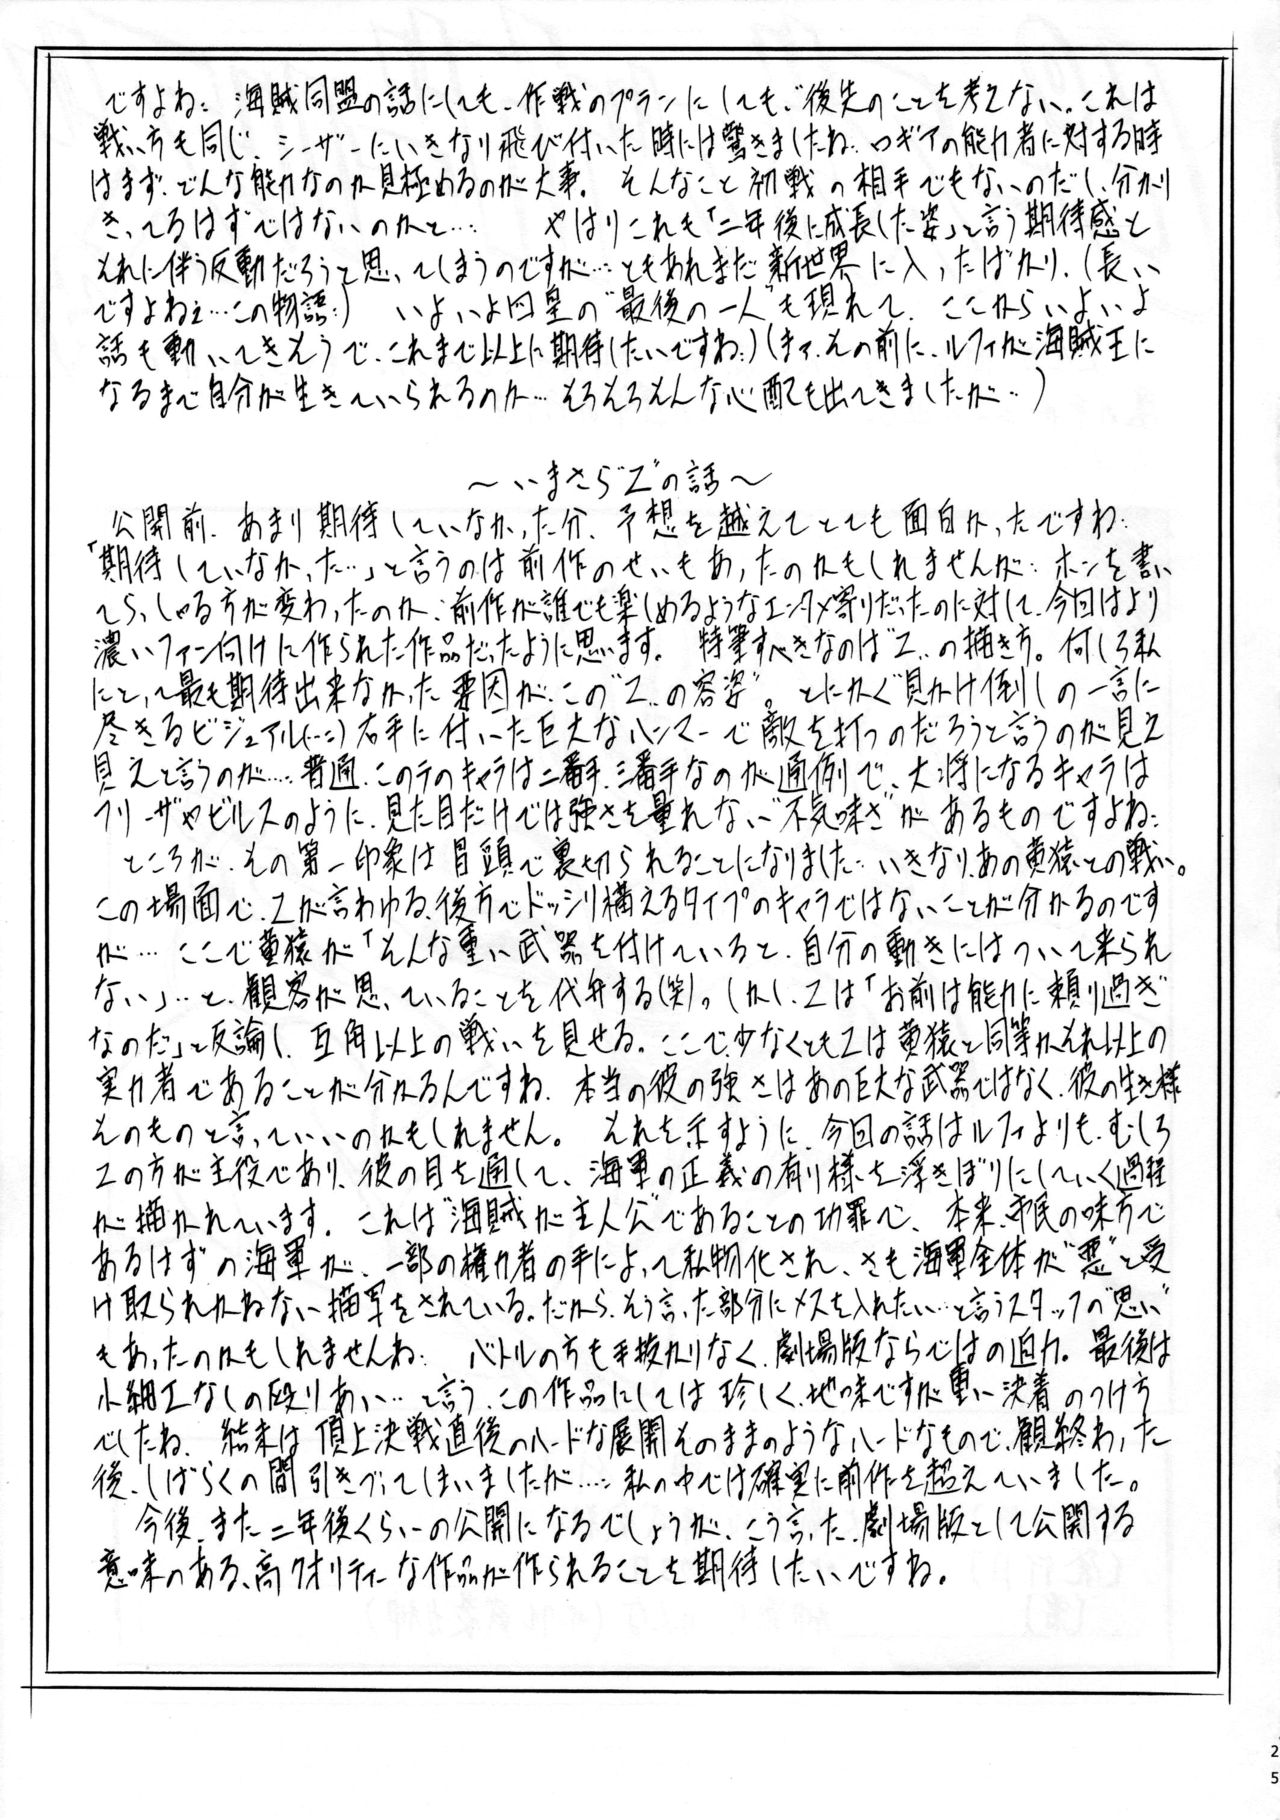 ですよね: 海賊同盟の話にしても、作戦のプランにしても、"後先のことを考えない。これは
戦い方も同じ、シーザーにいきなり飛び付いた時には驚きましたね‥ロギアの能力者に対する時
はまず、どんな能力なのか見極めるのが大事。 そんなこと初戦の相手でもないのだし、分かり
きってるはずではないのかと…: やはりこれも「二年後に成長した姿」と言う期待感と
それに伴う反動だろうと思ってしまうのですが…ともあれまだ新世界に入ったばかり、(長い
ですよねェ…この物語:) いよいよ四皇の"最後の一人"も現れて、ここからいよいよ
話も動いてきそうで、これまで以上に期待したいですね:)(まァ、その前に、ルフィが海賊王に
なるまで自分が生きていられるのか…そろそろそんな心配も出てきましたが‥)
～いまさら"Z"の話～
公開前、あまり期待していなかった分、予想を越えてとても面白かったですね:
「期待していなかった…」と言うのは前作のせいもあったのかもしれませんが‥ホンを書い
てらっしゃる方が変わったのか:前作が誰でも楽しめるようなエンタメ寄りだったのに対して、今回はより
濃いファン向けに作られた作品だったように思います。 特筆すべきなのは"Z"の描き方。何しろ私
にとって最も期待出来なかった要因が、この"Z"の容姿"。とにかく"見かけ倒しの一言に
尽きるビジュアル(…:)右手に付いた巨大なハンマーで敵を打つのだろうと言うのが見え
見えと言うのが…:普通、このテのキャラは二番手、三番手なのが通例で、大将になるキャラは
フリーザやビルスのように、見た目だけでは強さを量れない"不気味さ"があるものですよね:
ところが、その第一印象は冒頭で裏切られることになりました‥いきなり、あの黄猿との戦い。
この場面で、Zが言わゆる、後方でドッシリ構えるタイプのキャラではないことが分かるのです
が… ここで黄猿が「そんな重い武器を付けていると、自分の動きにはついて来られ
ない」‥と、観客が思っていることを代弁する(笑)。しかし、Zは「お前は能力に頼り過ぎ
なのだ」と反論し、互角以上の戦いを見せる。ここで少なくともZは黄猿と同等かそれ以上の
実力者であることが分かるんですね、本当の彼の強さはあの巨大な武器ではなく、彼の生き様
そのものと言っていいのかもしれません。 それを示すように、今回の話はルフィよりも、むしろ
Zの方が主役であり、彼の目を通して、海軍の正義の有り様を浮きぼりにしていく過程
が描かれています。これは"海賊が主人公"であることの功罪で、本来、市民の味方で
あるはずの海軍が、一部の権力者の手によって私物化され、さも海軍全体が"悪"と受
け取られかねない描写をされている。だから、そう言った部分にメスを入れたい…と言うスタッフの"思い"
もあったのかもしれませんね: バトルの方も手抜かりなく、劇場版ならではの迫力。最後は
小細工なしの殴りあい…と言う、この作品にしては珍しく、地味ですが重い決着のつけ方
でしたね、結末は頂上決戦直後のハードな展開そのままのようなハードなもので、観終わった
後、しばらくの間引きづってしまいましたが…:私の中では確実に前作を超えていました。
今後、また二年後くらいの公開になるでしょうが、こう言った、劇場版として公開する
意味のある、高クオリティーな作品が作られることを期待したいですね。
25